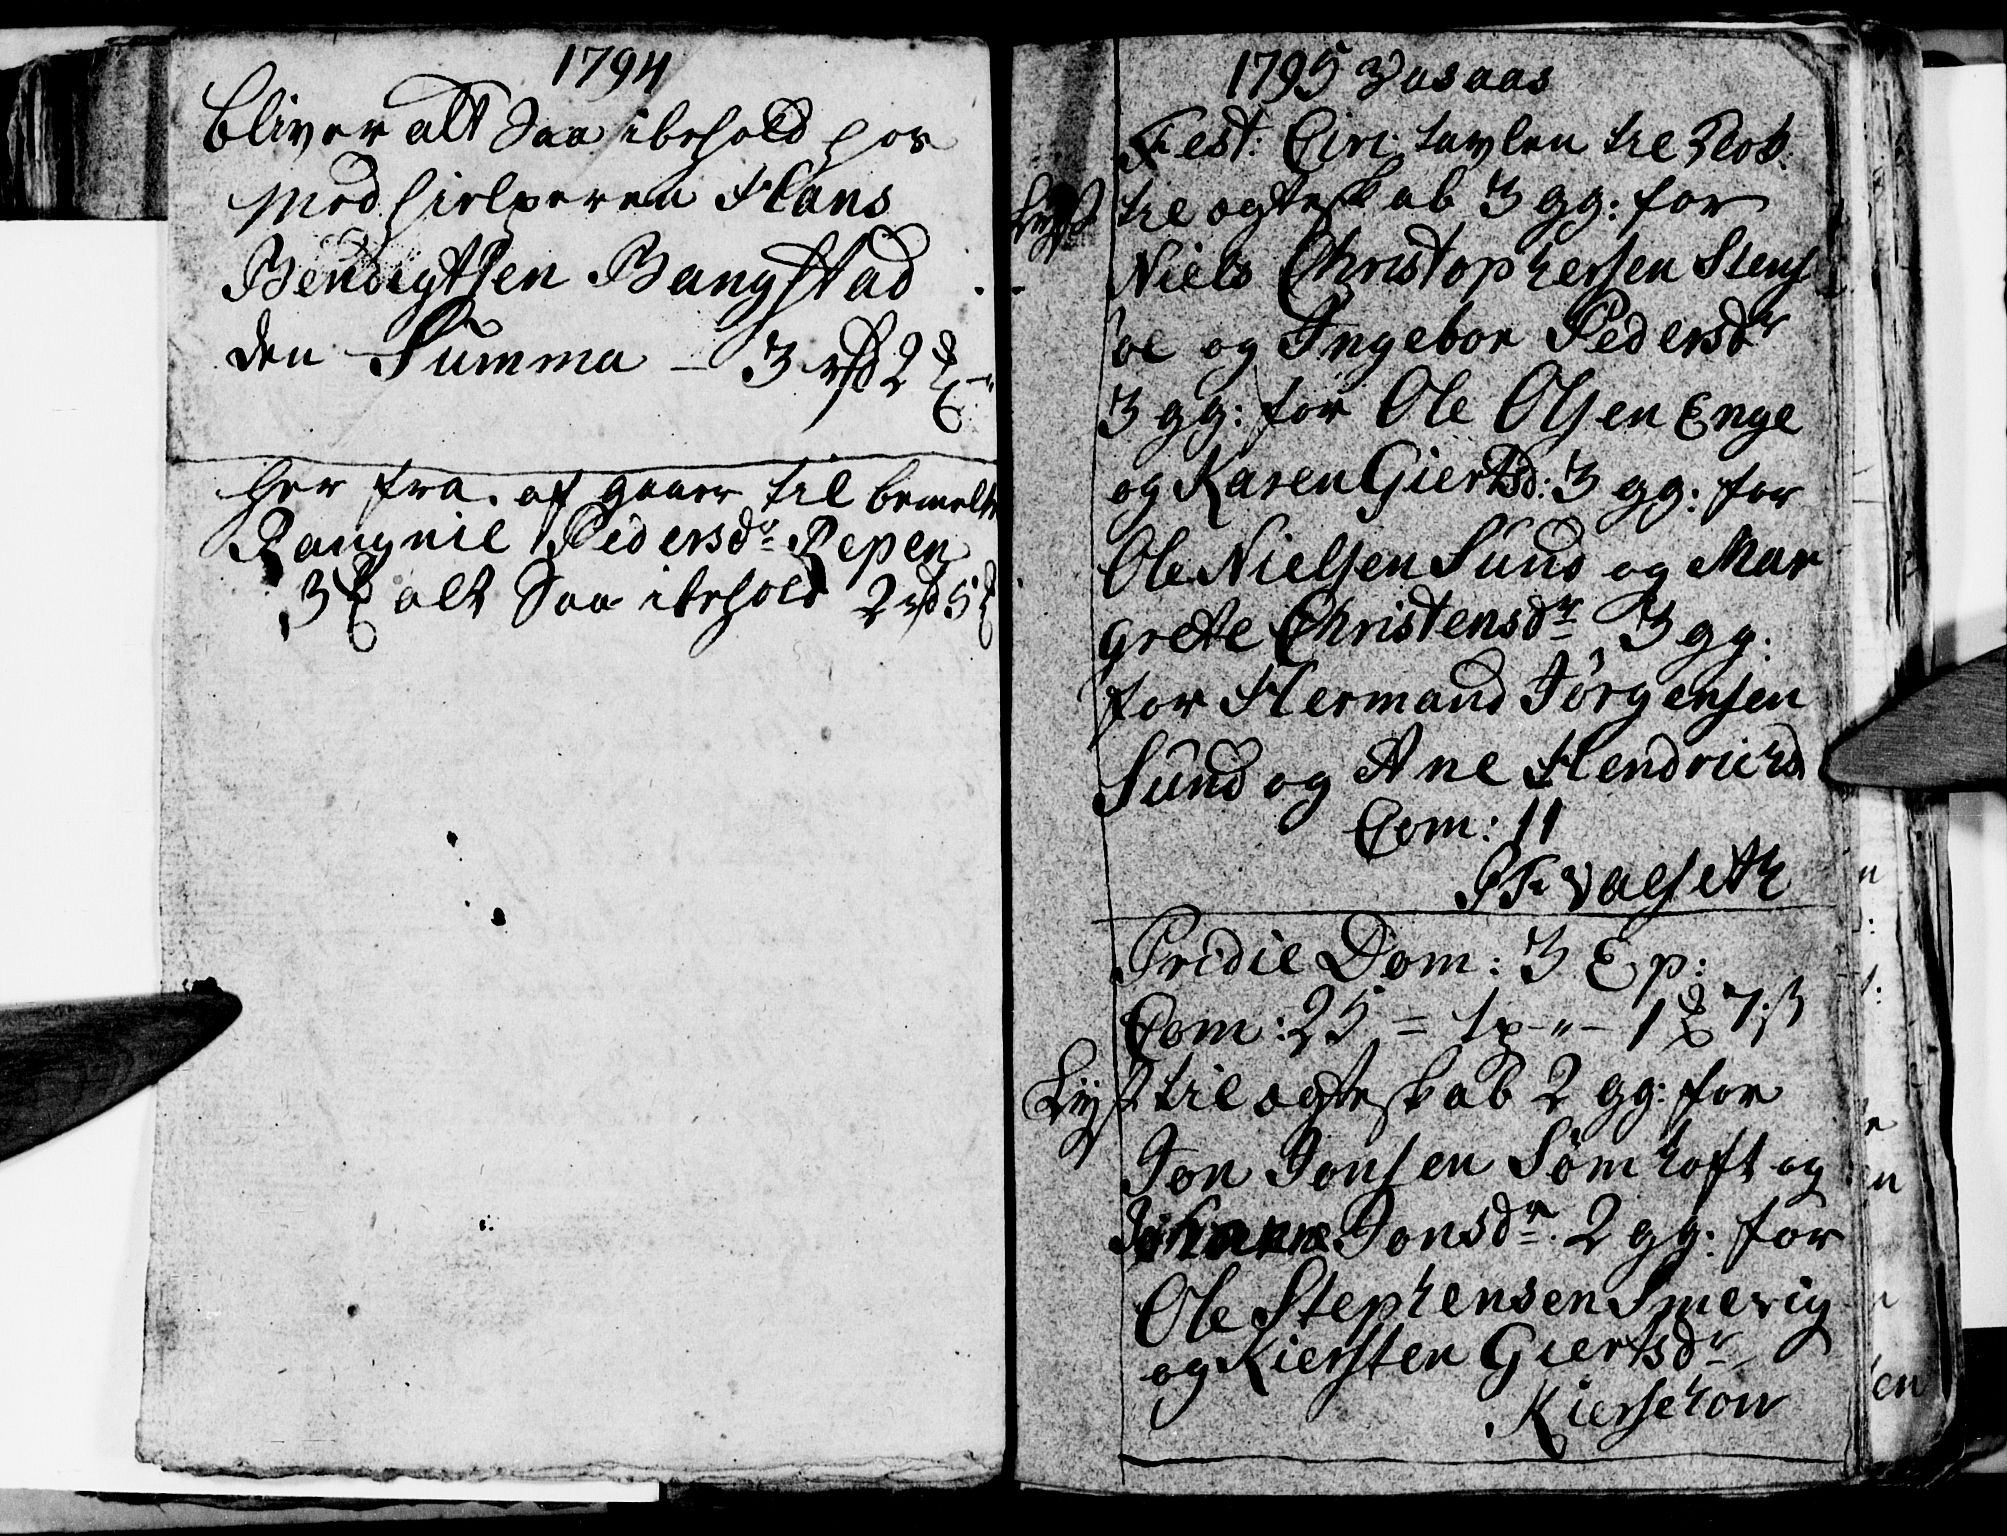 1794
bliver alt Saa ibehold hos
Medhielperen Hans
Bendigtsen Bangstad
den Summa — 3 rd 2 ℔ -"
her fra af gaaer til bemelte
Rangnil Pedersdr Repen
3 ℔ alt Saa ibehold 2 rd 5 ℔
1795
Fest: Circ: tavlen til
Lyst til ægteskab 3 gg: for
Niels Christophersen Stens
øe og Ingebor Pedersdr
3 gg: for Ole Olsen Enge
og Karen Giertsd: 3 gg: for
Ole Nielsen Sund og Mar
grete Christensdr 3 gg:
for Hermand Jørgensen
Sund og Ane Hendrichsd
Com: 11
Valseth
Pridie Dom: 3 Ep:
Com: 25 = 1 ℔ 7 ; 3
Lyst til ægteskab 2 gg: for
Jon Jonsen Sømhoft og
Jonsdr 2 gg: for
Ole Stephensen Smevig
og Kiersten Giertsdr
Kierschow